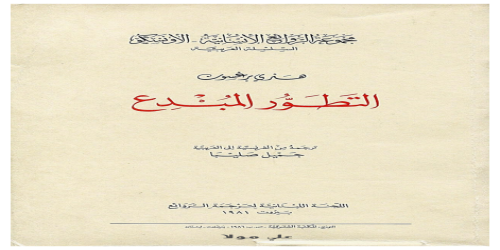 مجموعة الروائع الإنسانية - الأونسكو
السلسلة العربية
هنري برغسون
التطور المُبْدِع
ترجمة من الفرنسية إلى العربية
جميل صليبا
اللجنة اللبنانية لترجمة الروائع
بيروت ١٩٨١
علي مولا